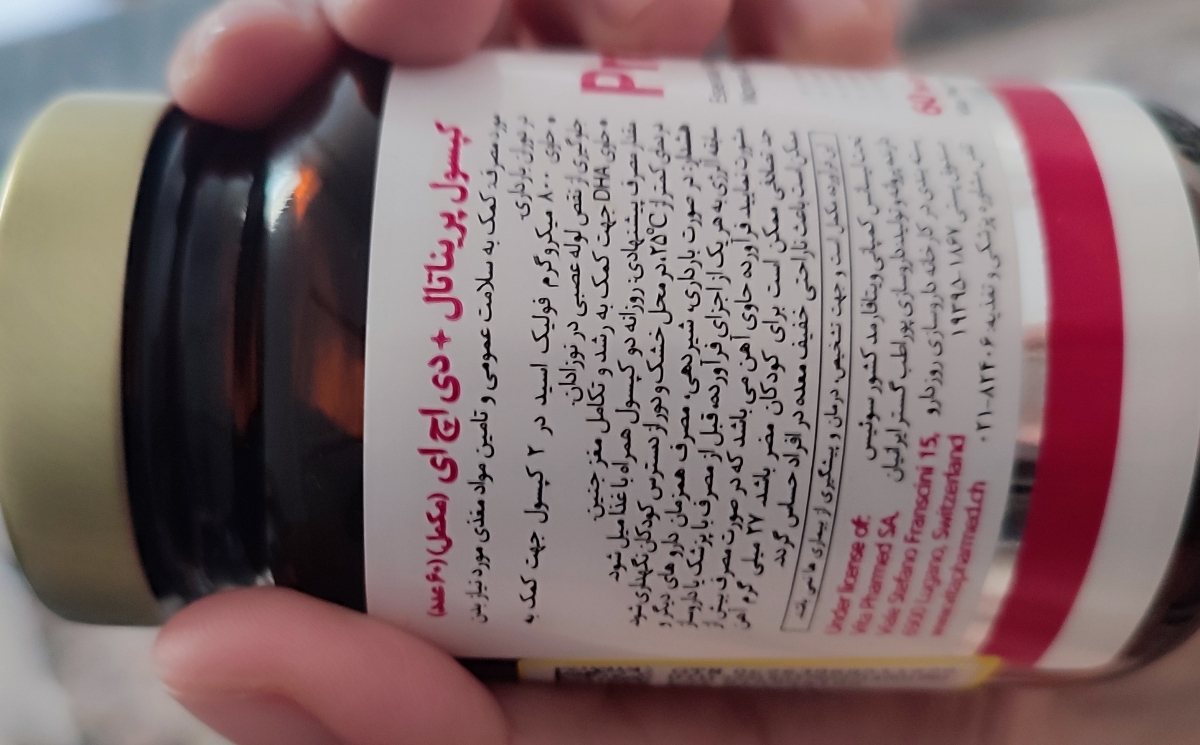 کپسول پریناتال + دی اچ ای (مکمل) (۶۰ عدد)
مورد مصرف: کمک به سلامت عمومی و تامین مواد مغذی مورد نیاز بدن
در دوران بارداری.
• حاوی ۸۰۰ میکروگرم فولیک اسید در ۲ کپسول جهت کمک به
جلوگیری از نقص لوله عصبی در نوزادان.
• حاوی DHA جهت کمک به رشد و تکامل مغز جنین.
مقدار مصرف پیشنهادی: روزانه دو کپسول همراه با غذا میل شود.
در دمای کمتر از ۲۵°C، در محل خشک و دور از دسترس کودکان نگهداری شود.
هشدار: در صورت بارداری، شیردهی، مصرف همزمان داروهای دیگر و
سابقه آلرژی به هر یک از اجزای فرآورده، قبل از مصرف با پزشک یا داروساز
مشورت نمایید. فرآورده حاوی آهن می باشد که در صورت مصرف بیش از
حد تصادفی ممکن است برای کودکان مضر باشد. ۲۷ میلی گرم آهن
ممکن است باعث ناراحتی خفیف معده در افراد حساس گردد.
این فرآورده مکمل است و جهت تشخیص، درمان و پیشگیری از بیماری ها نمی باشد.
تحت لیسانس کمپانی ویتافارمد کشور سوئیس
Under license of:
Vita Pharmed SA,
Viale Stefano Franscini 15,
6900 Lugano, Switzerland
www.vitapharmed.ch
داروسازی پوراطب گستر ایرانیان
بسته بندی در کارخانه داروسازی روز دارو
صندوق پستی ۱۸۱۶۷-۱۹۳۹۵
تلفن مشاوره پزشکی و تغذیه: ۸۲۴۰۶-۰۲۱
Pr
60